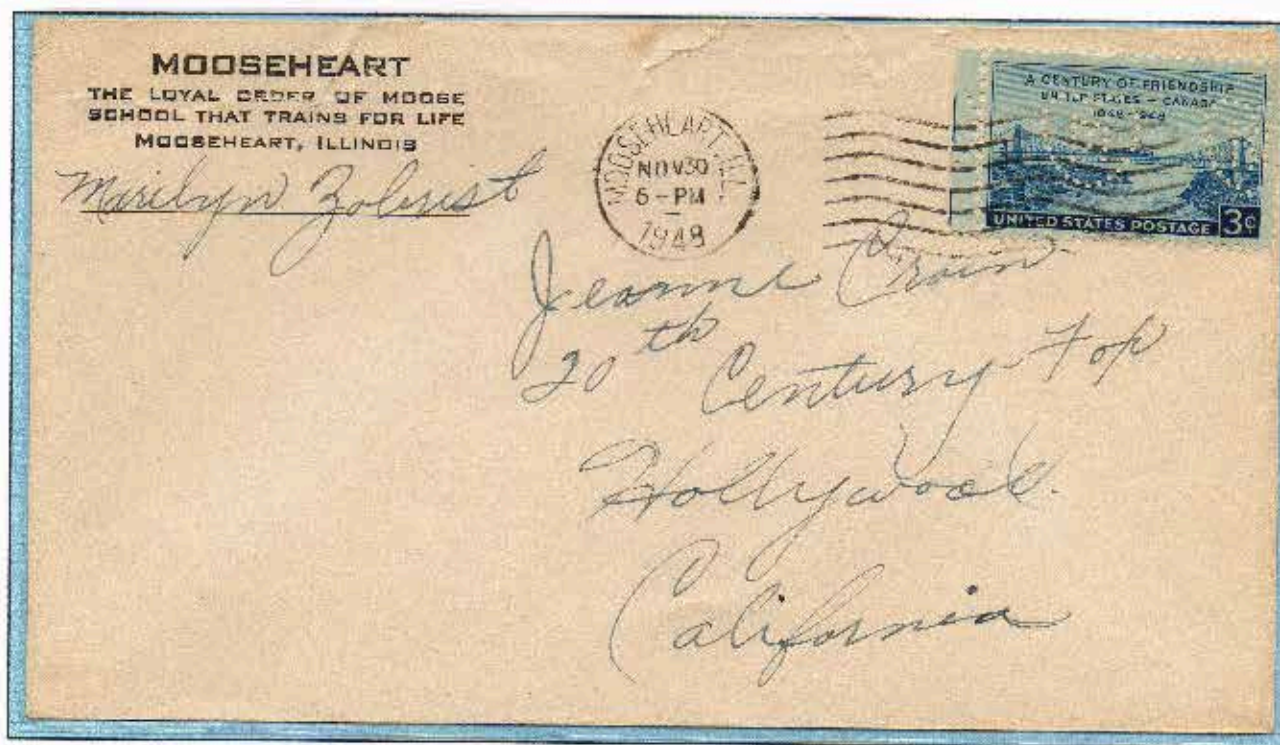 MOOSEHEART
THE LOYAL ORDER OF MOOSE
SCHOOL THAT TRAINS FOR LIFE
MOOSEHEART, ILLINOIS
Marilyn Zobrist
MOOSEHEART, ILL.
NOV 30
6-PM
1948
A CENTURY OF FRIENDSHIP
UNITED STATES - CANADA
1848-1948
UNITED STATES POSTAGE 3¢
Jeanne Crain
20th Century Fox
Hollywood.
California